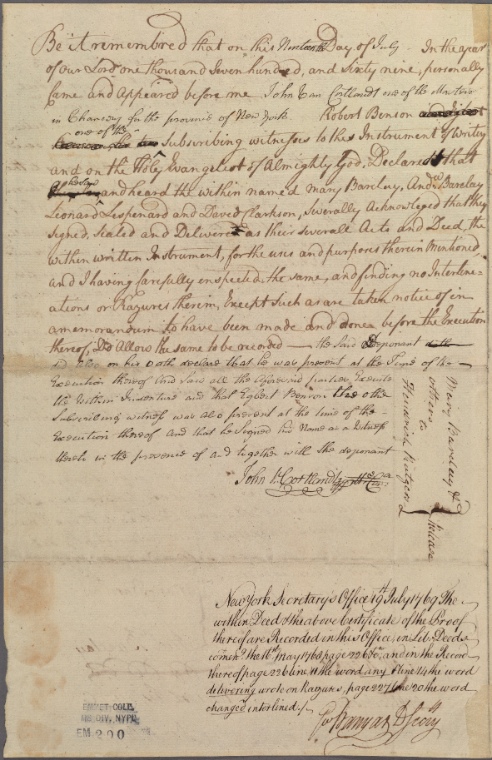 Be it remembered that on this Nineteenth Day of July - In the year
of our Lord one thousand Seven hundred, and Sixty nine, personally
Came and Appeared before me John Van Cortlandt one of the Masters
in Chancery for the province of New York Robert Benson
one of the
Subscribing witnesses to this Instrument of Writing
and on the Holy Evangelist of Almighty God, Declared that
and heard the within named Mary Barclay, And.w Barclay
Leonard Lispenard and David Clarkson, Severally Acknowledged that they
Signed, Sealed and Delivered as their Severall Acts and Deed, the
within written Instrument, for the uses and purposes therein Mentioned
and I having carefully inspected the same, and finding no Interline-
ations or Razures therein, Except Such as are taken notice of in
a memorandum to have been made and done before the Execution
thereof, Do Allow the same to be recorded — the said Deponant
on his Oath declare that he was present at the Time of the
Execution thereof and saw all the aforesaid parties Execute
the Within Indenture and that Egbert Benson the other
Subscribing witness was also present at the time of the
Execution thereof and that he Signed his Name as a Witness
thereto in the presence of and together with the deponant
John V. Cortlandt
Mary Barclay &.a
others to
Hendrick Rutgers
Release
New York Secretary's Office 19th July 1769 The
within Deed & the above Certificate of the Proof
thereof are Recorded in this Office, in Lib: Deeds
comen.g the 16th May 1768 page 226 &c, and in the Record
thereof page 226 line 11 the word any & line 14 the word
delivering wrote on Razures, page 227 line 20 the word
changed interlined./.
Geo Banyar D Secry
EMMET COLL.
MS. DIV., NYPL
EM 200